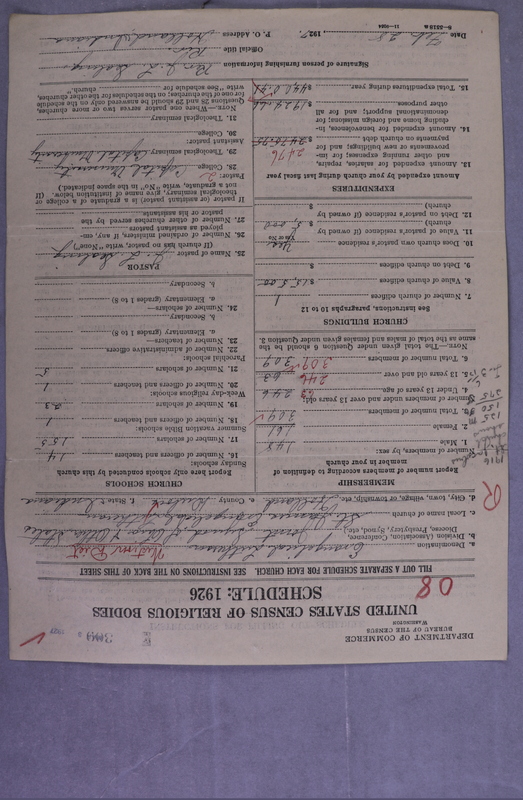 DEPARTMENT OF COMMERCE
BUREAU OF THE CENSUS
WASHINGTON
UNITED STATES CENSUS OF RELIGIOUS BODIES
SCHEDULE: 1926
08
FILL OUT A SEPARATE SCHEDULE FOR EACH CHURCH. SEE INSTRUCTIONS ON THE BACK OF THIS SHEET
a. Denomination Evangelical Lutheran
b. Division (Association, Conference, Diocese, Presbytery, Synod, etc. Joint Synod of Ohio & Other States
Western Dist
c. Local name of church St. James Evangelical Lutheran
d. City, town, village, or township, etc. Holland e. County Dubois f. State Indiana
MEMBERSHIP
Report number of members according to definition of member in your church
Number of members, by sex:
1. Male 148
2. Female 161
3. Total number of members 309
Number of members under and over 13 years old:
4. Under 13 years of age 63
5. 13 years old and over 246
6. Total number of members 309
NOTE.—The total given under Question 6 should be the same as the total of males and females given under Question 3.
CHURCH BUILDINGS
See instructions, paragraphs 10 to 12
7. Number of church edifices 1
8. Value of church edifices $ 15,000
9. Debt on church edifices $
10. Does church own pastor's residence Yes
Yes or No
11. Value of pastor's residence (if owned by church) $ 5,000
12. Debt on pastor's residence (if owned by church) $
EXPENDITURES
Amount expended by your church during last fiscal year
13. Amount expended for salaries, repairs, and other running expenses; for improvements or new building; and for payments on church debt $ 2476.75
2476
14. Amount expended for benevolences, including home and foreign missions; for denominational support; and for all other purposes $ 1924.66
15. Total expenditures during year $ 4401.41
CHURCH SCHOOLS
Report here only schools conducted by this church
Sunday schools:
16. Number of officers and teachers 14
17. Number of scholars 155
Summer vacation Bible schools:
18. Number of officers and teachers 1
19. Number of scholars 23
Week-day religious schools:
20. Number of officers and teachers 1
21. Number of scholars 5
Parochial schools:
22. Number of administrative officers
23. Number of teachers—
a. Elementary (grades 1 to 8)
b. Secondary
24. Number of scholars—
a. Elementary (grades 1 to 8)
b. Secondary
PASTOR
25. Name of pastor
(If church has no pastor, write "None")
26. Number of ordained ministers, if any, employed as assistant pastors
27. Number of other churches served by the pastor or his assistants
If pastor (or assistant pastor) is a graduate of a college or theological seminary, give name of institution below. (If not a graduate, write "No" in the space indicated.)
Pastor:
28. College Capital University
29. Theological seminary Capital University
Assistant pastor:
30. College
31. Theological seminary
NOTE.—Where one pastor serves two or more churches, Questions 28 and 29 should be answered only on the schedule for one of the churches; on the schedules for the other churches, write "See schedule for church."
Signature of person furnishing information
Official title
P. O. Address Holland, Indiana
Date Feb 28, 1927.